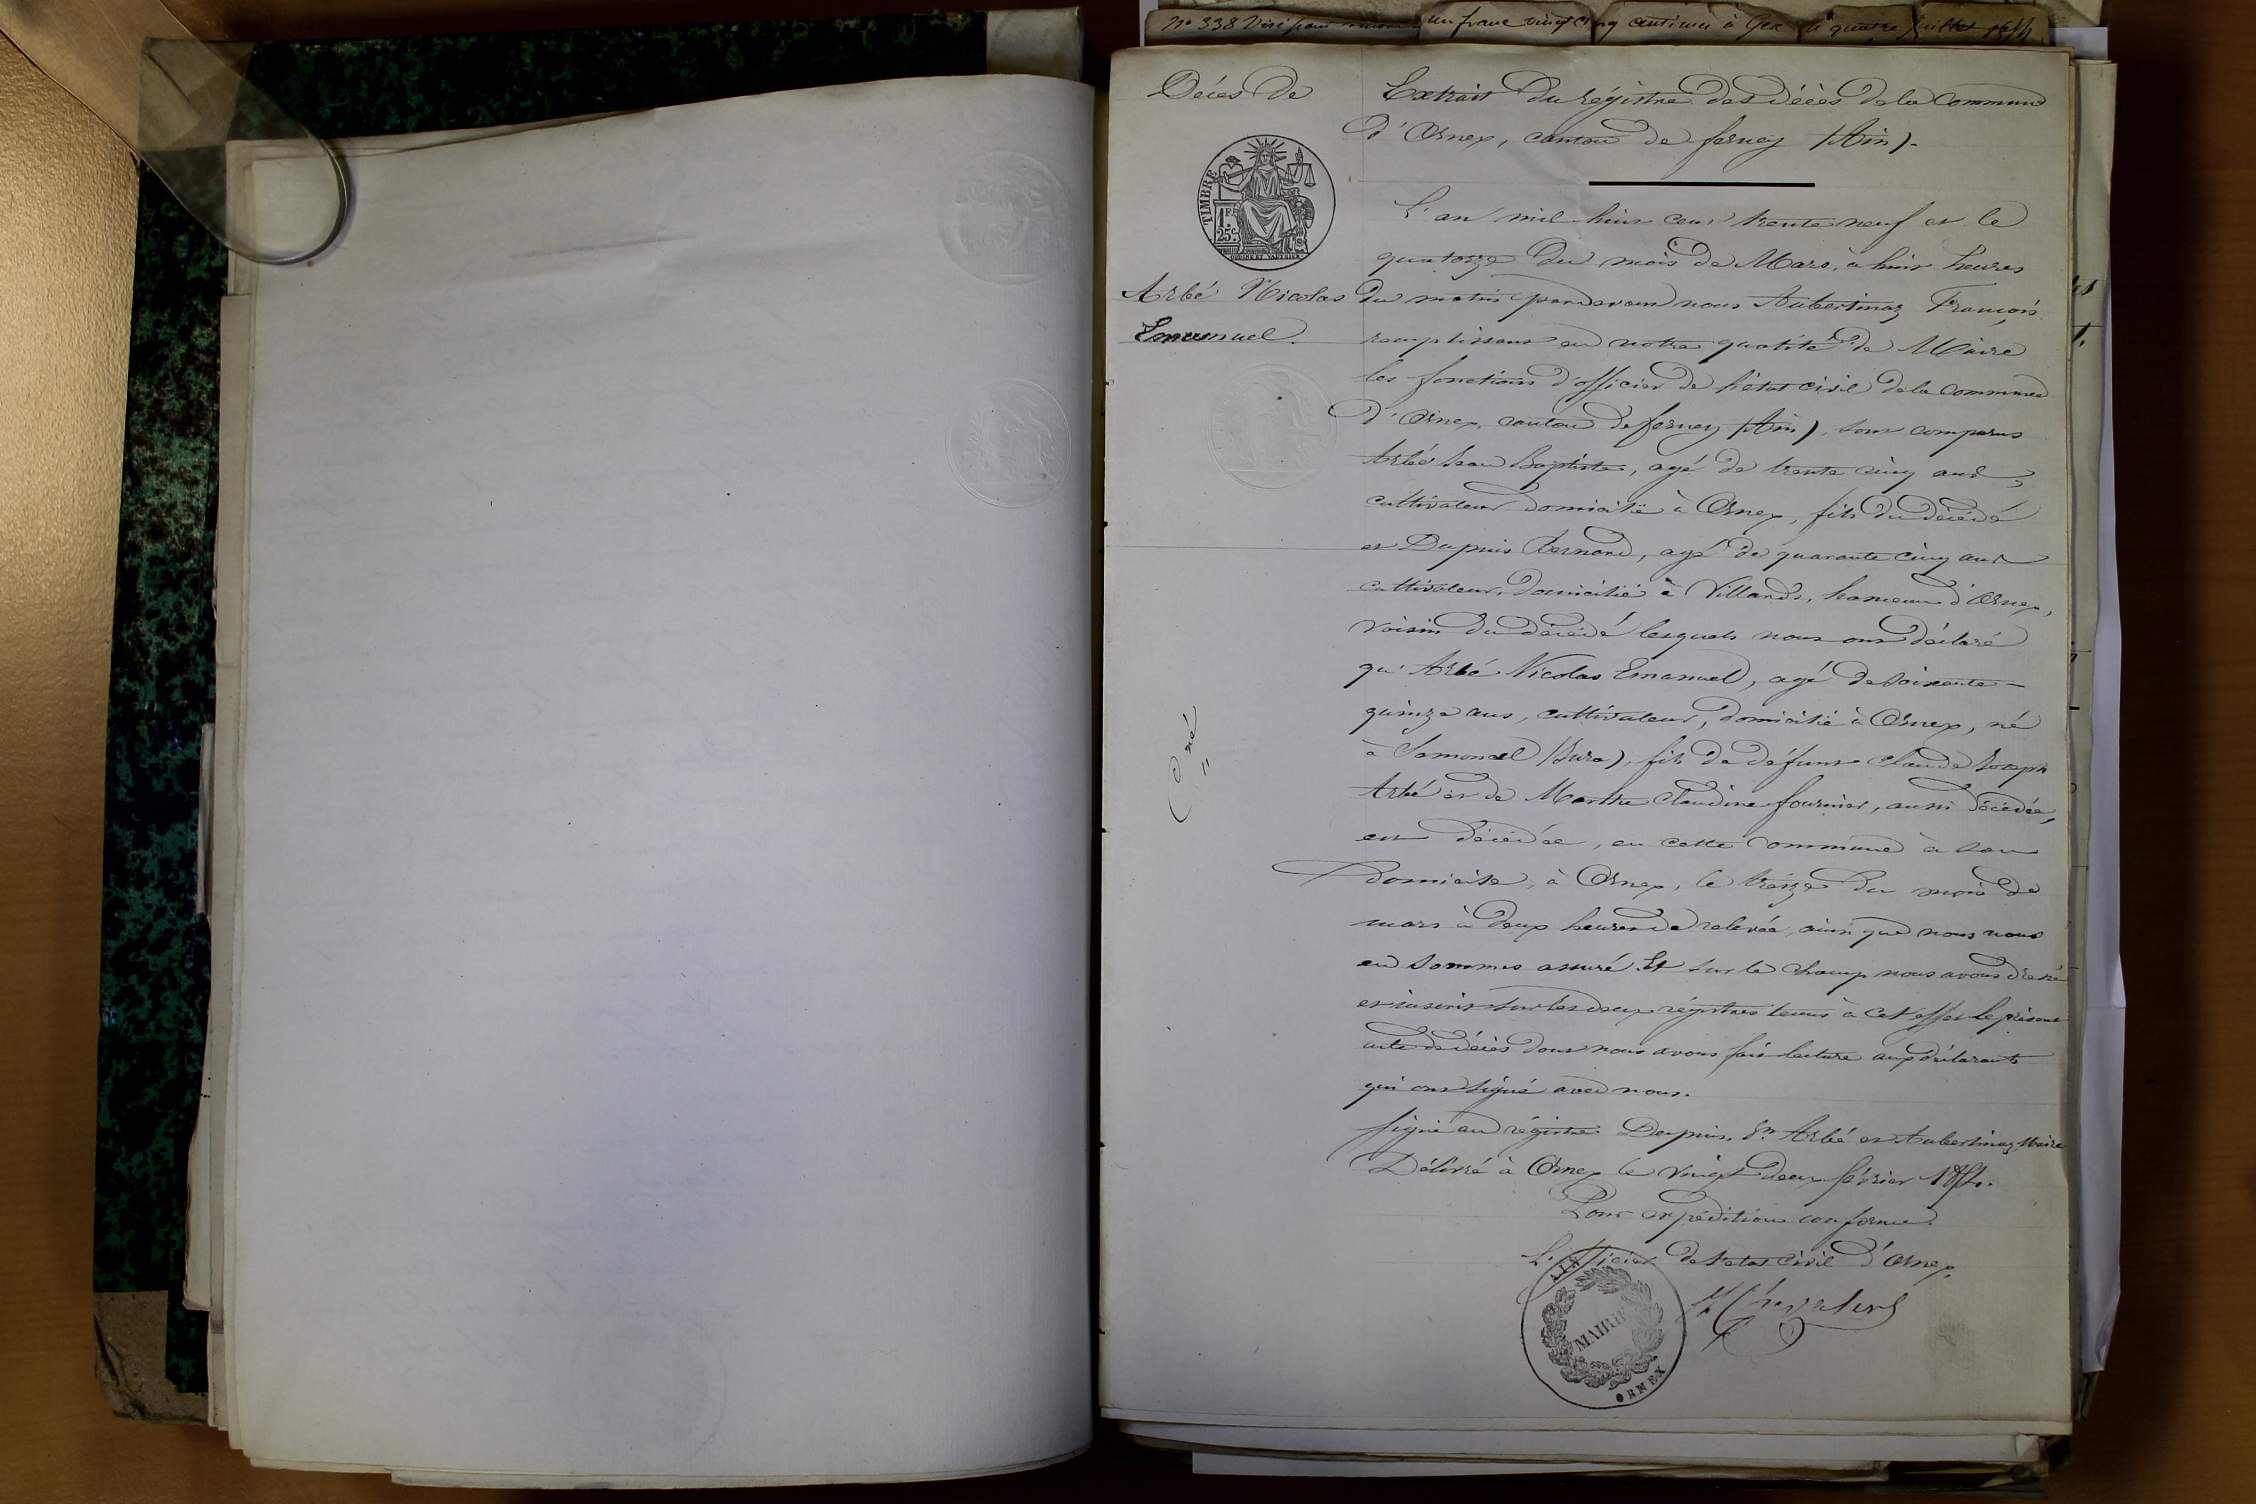 N° 338 Visé pour un franc vingt cinq centimes à Gex le quatre juillet
Décès de
Arbé Nicolas
Emanuel.
TIMBRE
1 F.
25 c.
Extrait du régistre des décès de la commune
d'Ornex, canton de ferney (Ain).
L'an mil huit cent trente neuf et le
quatorze du mois de Mars, à huit heures
du matin pardevant nous Aubertinaz François
remplissant en notre qualité de Maire
les fonctions d'officier de l'état civil de la commune
d'Ornex, canton de ferney (Ain), sont comparus
Arbé Jean Baptiste, agé de trente cinq ans,
cultivateur domicilié à Ornex, fils du décédé
et Dupuis Bernard, agé de quarante cinq ans
cultivateur, domicilié à Villards, hameau d'Ornex,
voisin du décédé lesquels nous ont déclaré
qu'Arbé Nicolas Emanuel, agé de soixante-
quinze ans, cultivateur, domicilié à Ornex, né
à Lamoncel (Jura), fils de défunt Claude Joseph
Arbé et de Marthe Claudine fournier, aussi décédée,
est décédée, en cette commune à son
domicile, à Ornex, le treize du mois de
mars à deux heures de relevée, ainsi que nous nous
en sommes assuré. Et sur le champ nous avons dressé
et inscrit sur les deux régistres tenus à cet effet le présent
acte de décès dont nous avons fait lecture aux déclarants
qui ont signé avec nous.
signé au régistre Dupuis, Jn Arbé et Aubertinaz, Maire
Délivré à Ornex le vingt deux février
Pour expédition conforme.
L'officier de l'état civil d'Ornex,
né
AIN
MAIRIE
ORNEX